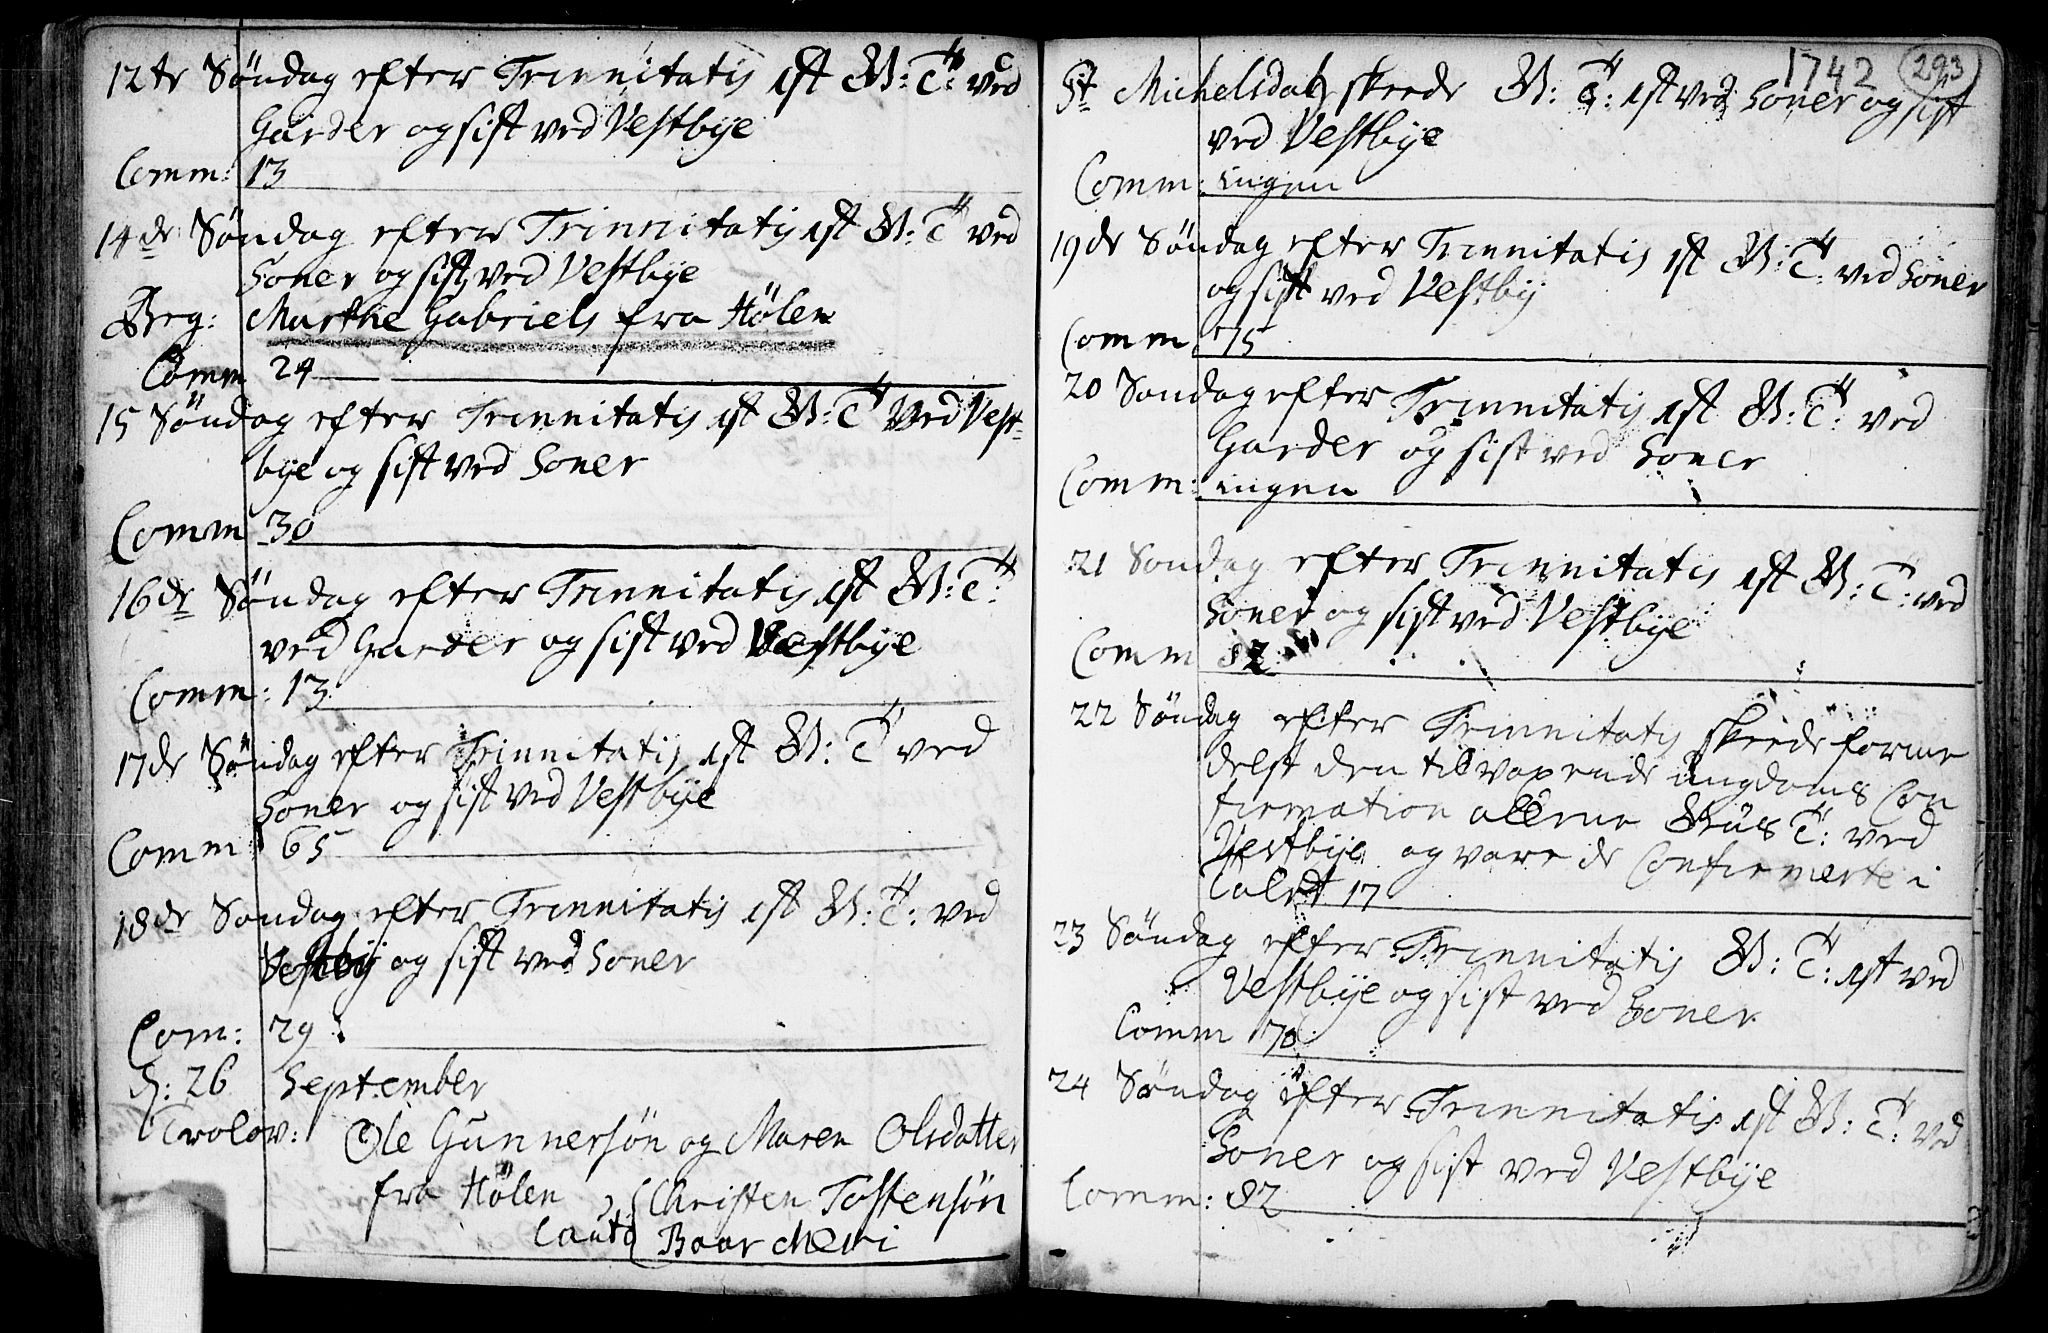 12te Søndag efter Trinnitatis 1st G: T: ved
Garder og sist ved Vestbye
Comm: 13
14de Søndag efter Trinnitatis 1st G: T: ved
Soner og sist ved Vestbye
Beg: Marthe Gabriels fra Hølen
Comm 24
15 Søndag efter Trinnitatis 1st G: T: Ved Vest-
bye og sist ved Soner
Comm 30
16de Søndag efter Trinnitatis 1st G: T:
ved Garder og sist ved Vestbye
Comm: 13
17de Søndag efter Trinnitatis 1st G: T: ved
Soner og sist ved Vestbye
Comm 65
18de Søndag efter Trinnitatis 1st G: T: ved
Vestby og sist ved Soner
Com: 29
d: 26 September
Trolov: Ole Gunnersøn og Maren Olsdatter
fra Hølen Caut: Christen Tostensøn
Baar
1742 293
St Michelsdag skeede G: T: 1st ved Soner og sist
ved Vestbye
Comm: ingen
19de Søndag efter Trinnitatis 1st G: T: ved Soner
og sist ved Vestby
Comm 75
20 Søndag efter Trinnitatis 1st G: T: ved
Garder og sist ved Soner
Comm: ingen
21 Søndag efter Trinnitatis 1st G: T: ved
Soner og sist ved Vestbye
Comm 82
22 Søndag efter Trinnitatis skeede forme
delst den tilvoxende ungdoms Con
firmation allene Guds T: ved
Vestbye og vare de Confirmerte i
Tallet 17
23 Søndag efter Trinnitatis G: T: 1st ved
Vestbye og sist ved Soner
Comm 70
24 Søndag efter Trinnitatis 1st G: T: ved
Soner og sist ved Vestbye
Comm: 82